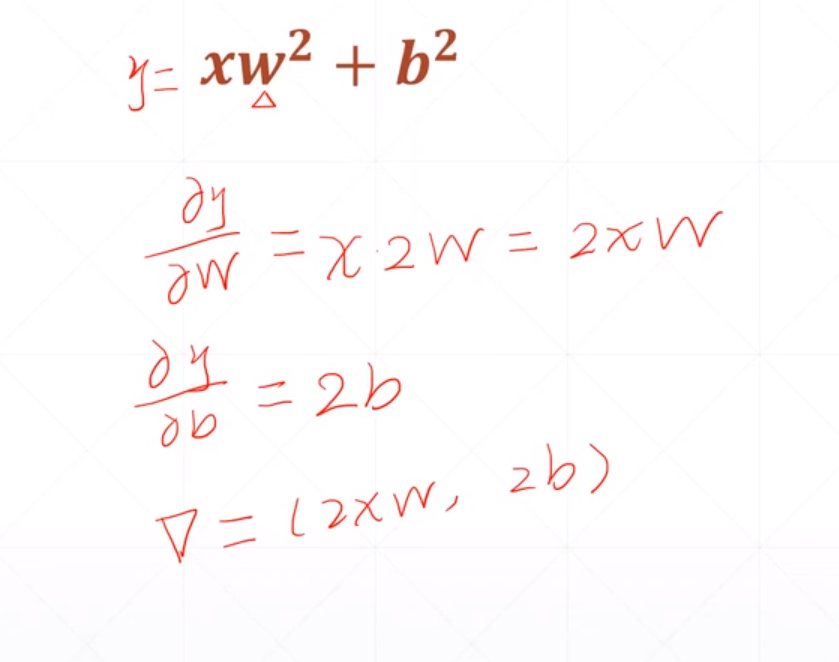 y = xw² + b²
△
∂y/∂w = x·2w = 2xw
∂y/∂b = 2b
∇ = (2xw, 2b)